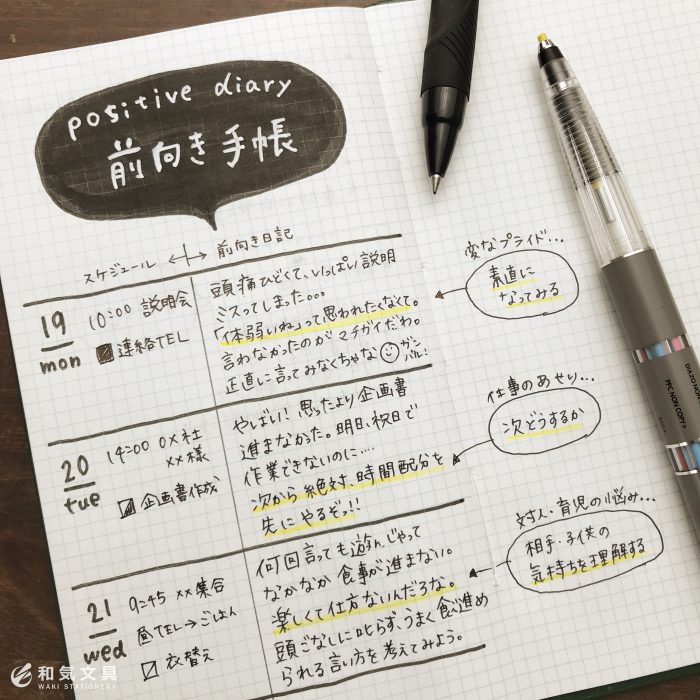 positive diary
前向き手帳
スケジュール ←|→ 前向き日記
19
mon
10:00 説明会
連絡TEL
頭痛ひどくて、いっぱい説明
ミスってしまった。。。
「体弱いね」って思われたくなくて。
言わなかったのがマチガイだわ。
正直に言ってみなくちゃな ガンバル!
変なプライド…
素直に
なってみる
20
tue
14:00 〇×社
××様
企画書作成
やばい! 思ったより企画書
進まなかった。明日、祝日で
作業できないのに…
次から絶対、時間配分を
先にやるぞっ!!
仕事のあせり…
次どうするか
21
wed
9:45 ××集合
昼TEL→ごはん
衣替え
何回言っても遊んじゃって
なかなか食事が進まない。
楽しくて仕方ないんだろな。
頭ごなしに叱らず、うまく食べ進め
られる言い方を考えてみよう。
対人・育児の悩み…
相手・子供の
気持ちを理解する
DIAZO NON
PPC NON COPY>
和気文具
WAKI STATIONERY